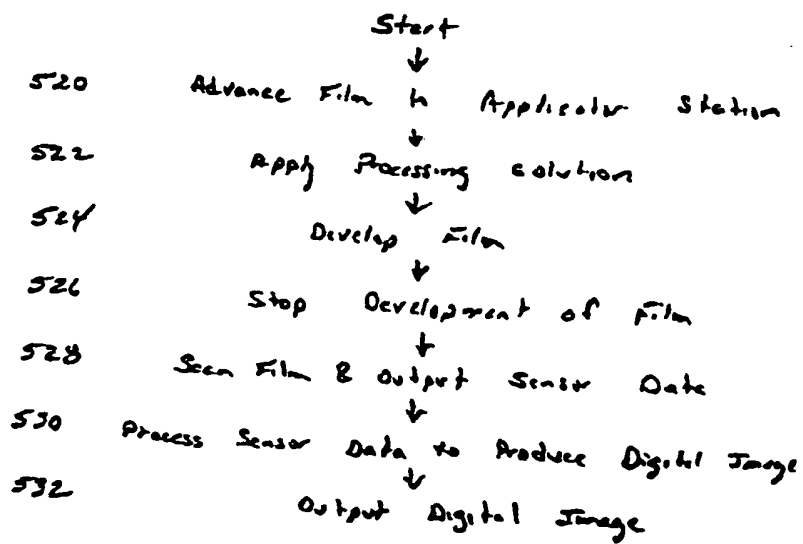 Start
↓
520 Advance Film to Applicator Station
↓
522 Apply Processing solution
↓
524 Develop Film
↓
526 Stop Development of Film
↓
528 Scan Film & Output Sensor Data
↓
530 Process Sensor Data to Produce Digital Image
↓
532 Output Digital Image